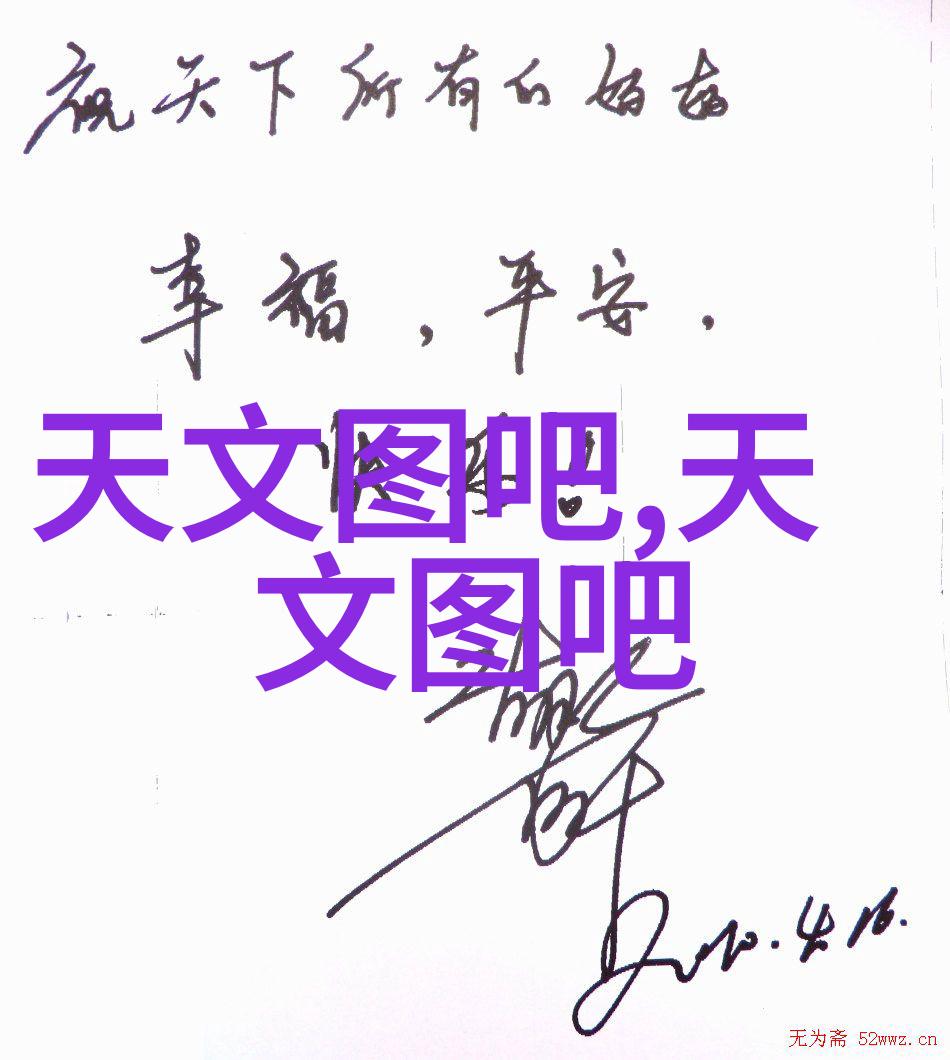 祝天下所有的妈妈
幸福,平安,
快乐!
天文图吧,天
文图吧
2010.4.16.
无为斋 52wwz.cn